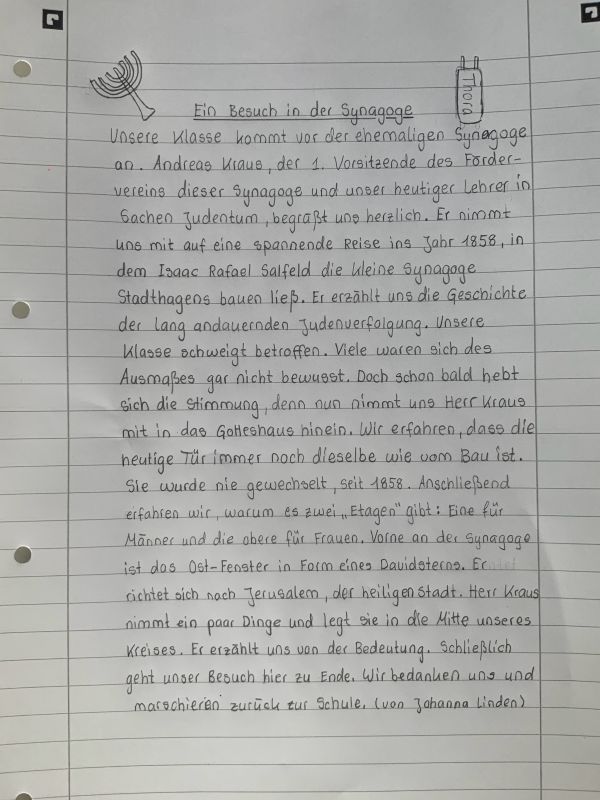 Thora
Ein Besuch in der Synagoge
Unsere Klasse kommt vor der ehemaligen Synagoge
an. Andreas Kraus, der 1. Vorsitzende des Förder-
vereins dieser Synagoge und unser heutiger Lehrer in
Sachen Judentum, begrüßt uns herzlich. Er nimmt
uns mit auf eine spannende Reise ins Jahr 1858, in
dem Isaac Rafael Salfeld die kleine Synagoge
Stadthagens bauen ließ. Er erzählt uns die Geschichte
der lang andauernden Judenverfolgung. Unsere
Klasse schweigt betroffen. Viele waren sich des
Ausmaßes gar nicht bewusst. Doch schon bald hebt
sich die Stimmung, denn nun nimmt uns Herr Kraus
mit in das Gotteshaus hinein. Wir erfahren, dass die
heutige Tür immer noch dieselbe wie vom Bau ist.
Sie wurde nie gewechselt, seit 1858. Anschließend
erfahren wir, warum es zwei „Etagen" gibt: Eine für
Männer und die obere für Frauen. Vorne an der Synagoge
ist das Ost-Fenster in Form eines Davidsterns. Er
richtet sich nach Jerusalem, der heiligen Stadt. Herr Kraus
nimmt ein paar Dinge und legt sie in die Mitte unseres
Kreises. Er erzählt uns von der Bedeutung. Schließlich
geht unser Besuch hier zu Ende. Wir bedanken uns und
marschieren zurück zur Schule. (von Johanna Linden)